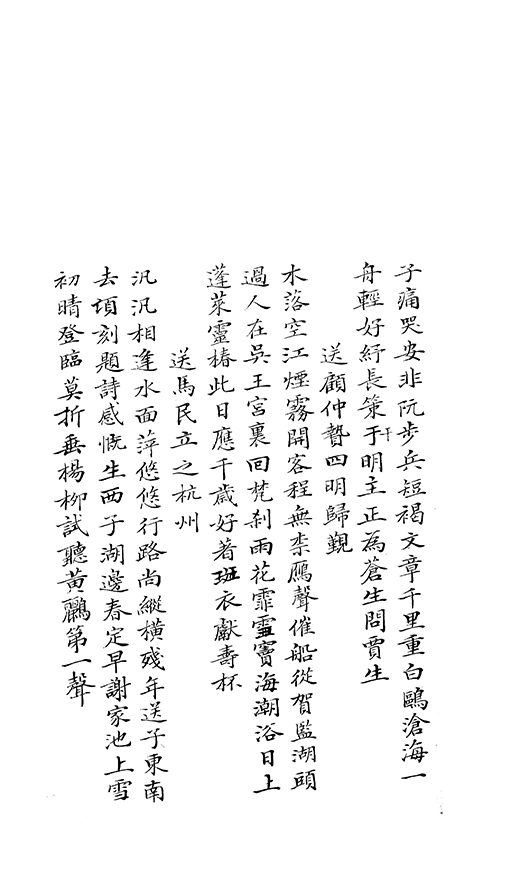 子痛哭安非阮步兵短褐文章千里重白鷗滄海一
舟輕好紓長策于明主正為蒼生問賈生
送顧仲贄四明歸覲
水落空江煙霧開客程無柰鴈聲催船從賀監湖頭
過人在吳王宮裏回梵刹雨花霏雪竇海潮浴日上
蓬萊靈椿此日應千歲好著班衣獻壽杯
送馬民立之杭州
汎汎相逢水面萍悠悠行路尚縱橫殘年送子東南
去頃刻題詩感慨生西子湖邊春定早謝家池上雪
初晴登臨莫折垂楊柳試聽黃鸝第一聲